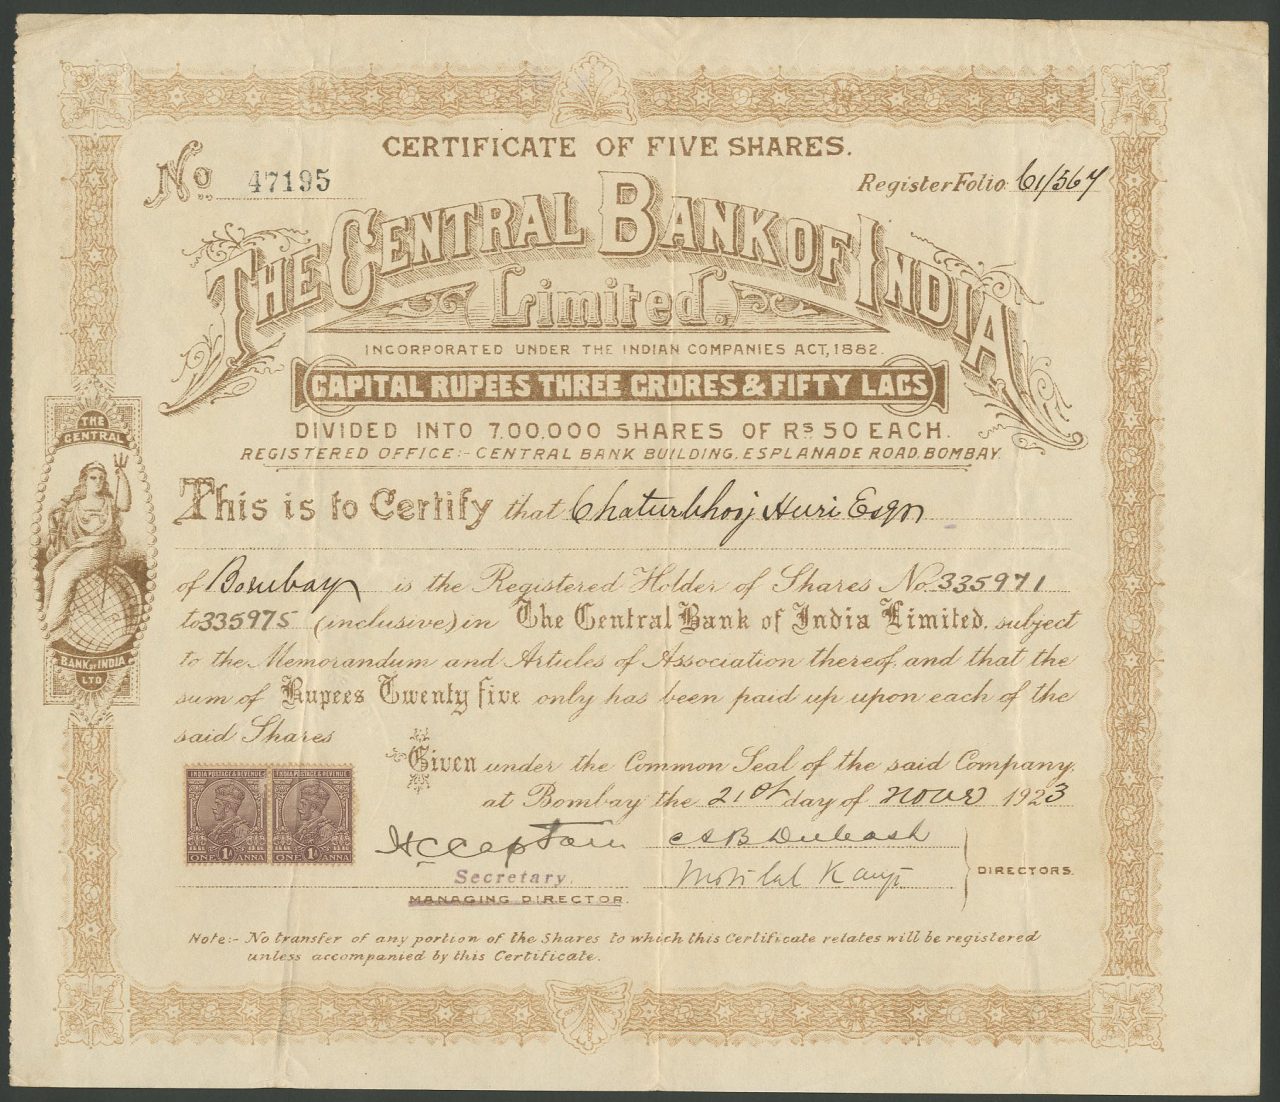 CERTIFICATE OF FIVE SHARES.
No 47195
Register Folio 61/367
THE CENTRAL BANK OF INDIA
Limited,
INCORPORATED UNDER THE INDIAN COMPANIES ACT, 1882.
CAPITAL RUPEES THREE CRORES & FIFTY LACS
DIVIDED INTO 7,00,000 SHARES OF Rs 50 EACH.
REGISTERED OFFICE:- CENTRAL BANK BUILDING, ESPLANADE ROAD, BOMBAY.
THE CENTRAL
BANK OF INDIA
LTD
This is to Certify that Chaturbhoj Huri Esqr
of Bombay is the Registered Holder of Shares No. 335971
to 335975 (inclusive) in The Central Bank of India Limited, subject
to the Memorandum and Articles of Association thereof, and that the
sum of Rupees Twenty five only has been paid up upon each of the
said Shares
Given under the Common Seal of the said Company,
at Bombay the 21st day of 1923
INDIA POSTAGE & REVENUE INDIA POSTAGE & REVENUE
ONE 1A ANNA ONE 1A ANNA
H C Captain
A B Dubash
Secretary.
Motilal Kanji
DIRECTORS.
MANAGING DIRECTOR.
Note:- No transfer of any portion of the Shares to which this Certificate relates will be registered
unless accompanied by this Certificate.